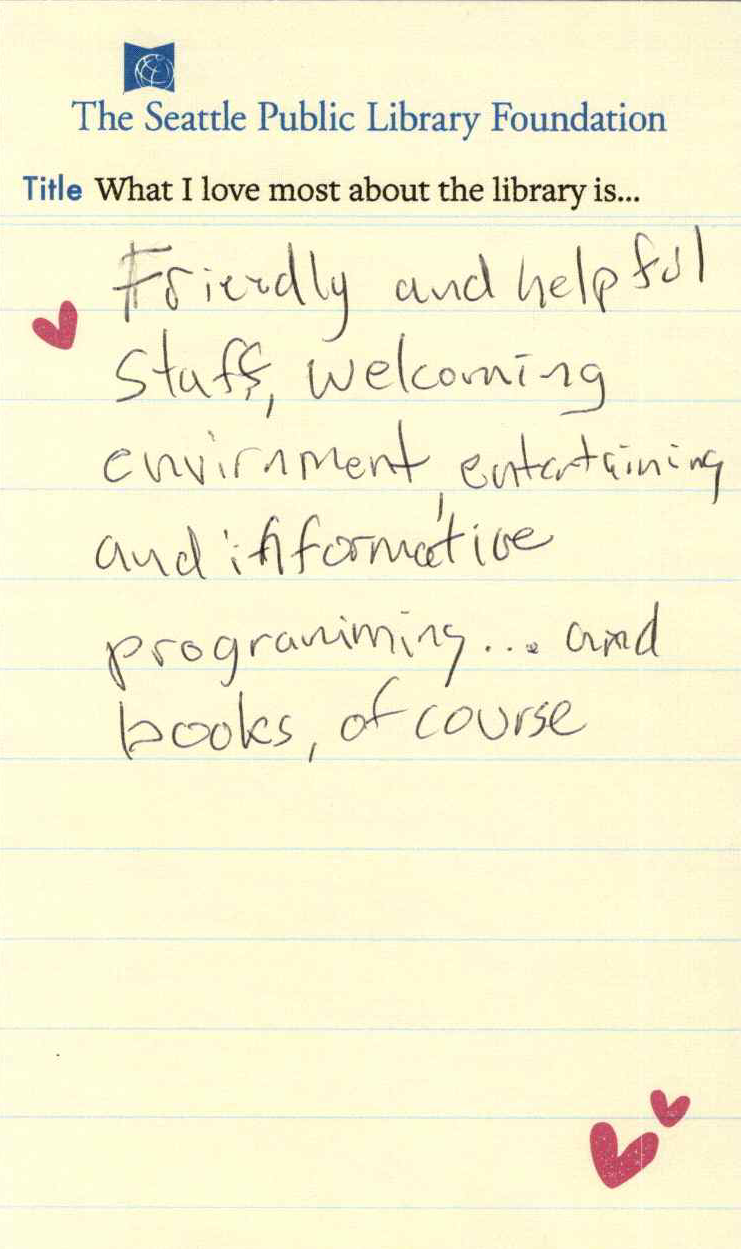 The Seattle Public Library Foundation
Title What I love most about the library is...
Friendly and helpful
staff, welcoming
envirnment, entertaining
and informative
programming... and
books, of course